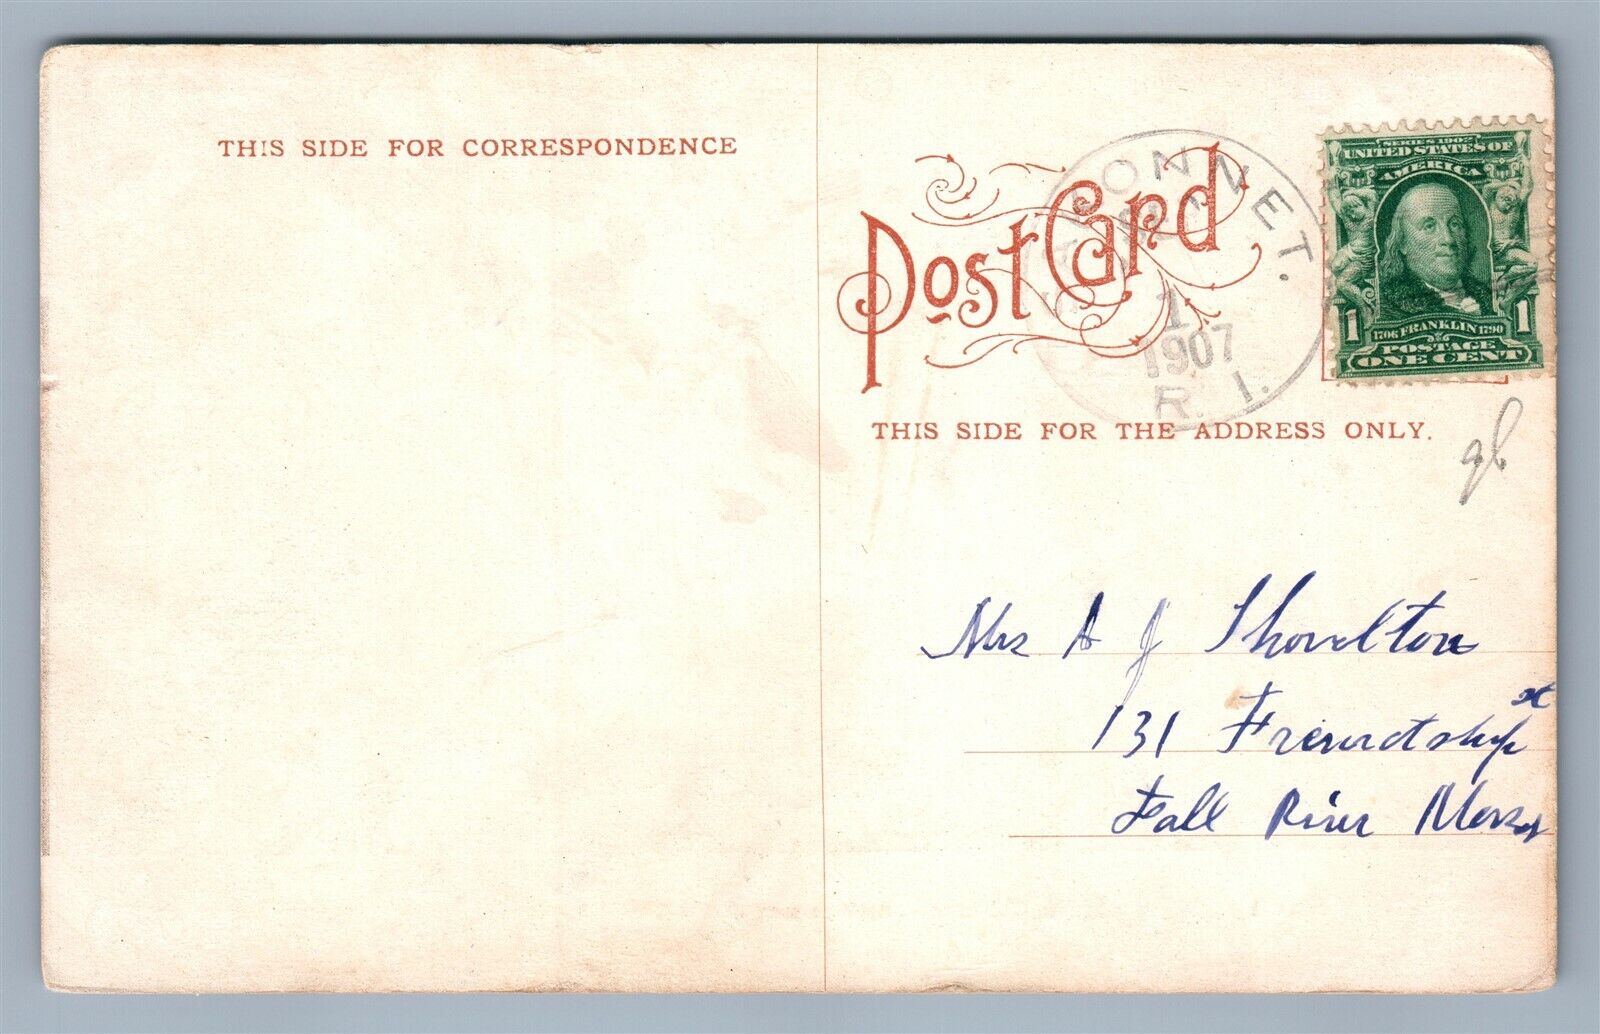 THIS SIDE FOR CORRESPONDENCE
Post Card
SAKONNET.
1
1907
R. I.
SERIES 1902
UNITED STATES OF
AMERICA
1 1706 FRANKLIN 1790 1
POSTAGE
ONE CENT
THIS SIDE FOR THE ADDRESS ONLY.
Mrs A J Shovelton
131 Friendship st
Fall River Mass